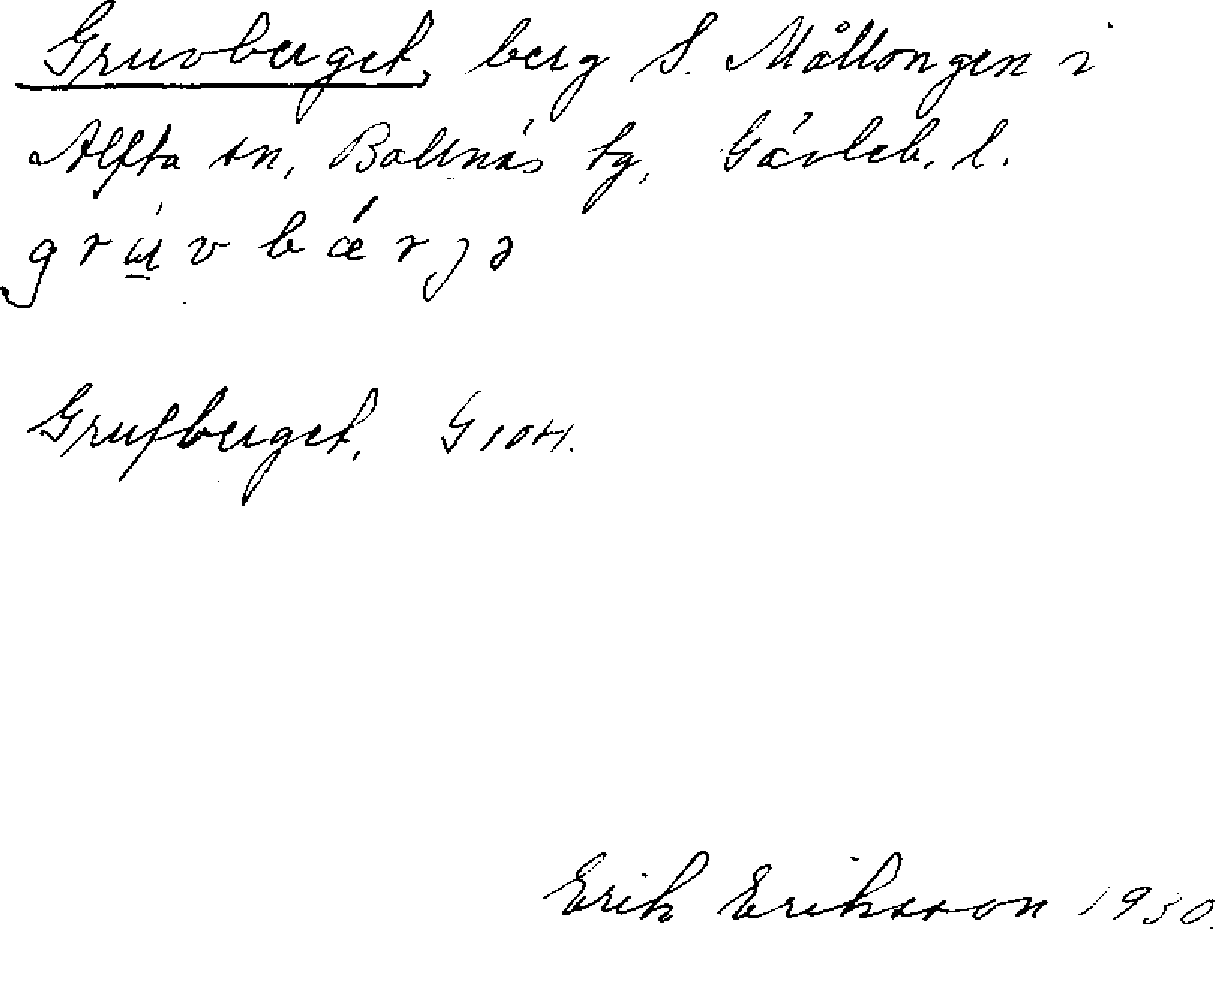 Gruvberget, berg S. Mållongen i
Alfta sn, Bollnäs tg, Gävleb. l.
grúvbǽrjə
Grufberget. G 104.
Erik Eriksson 1930.